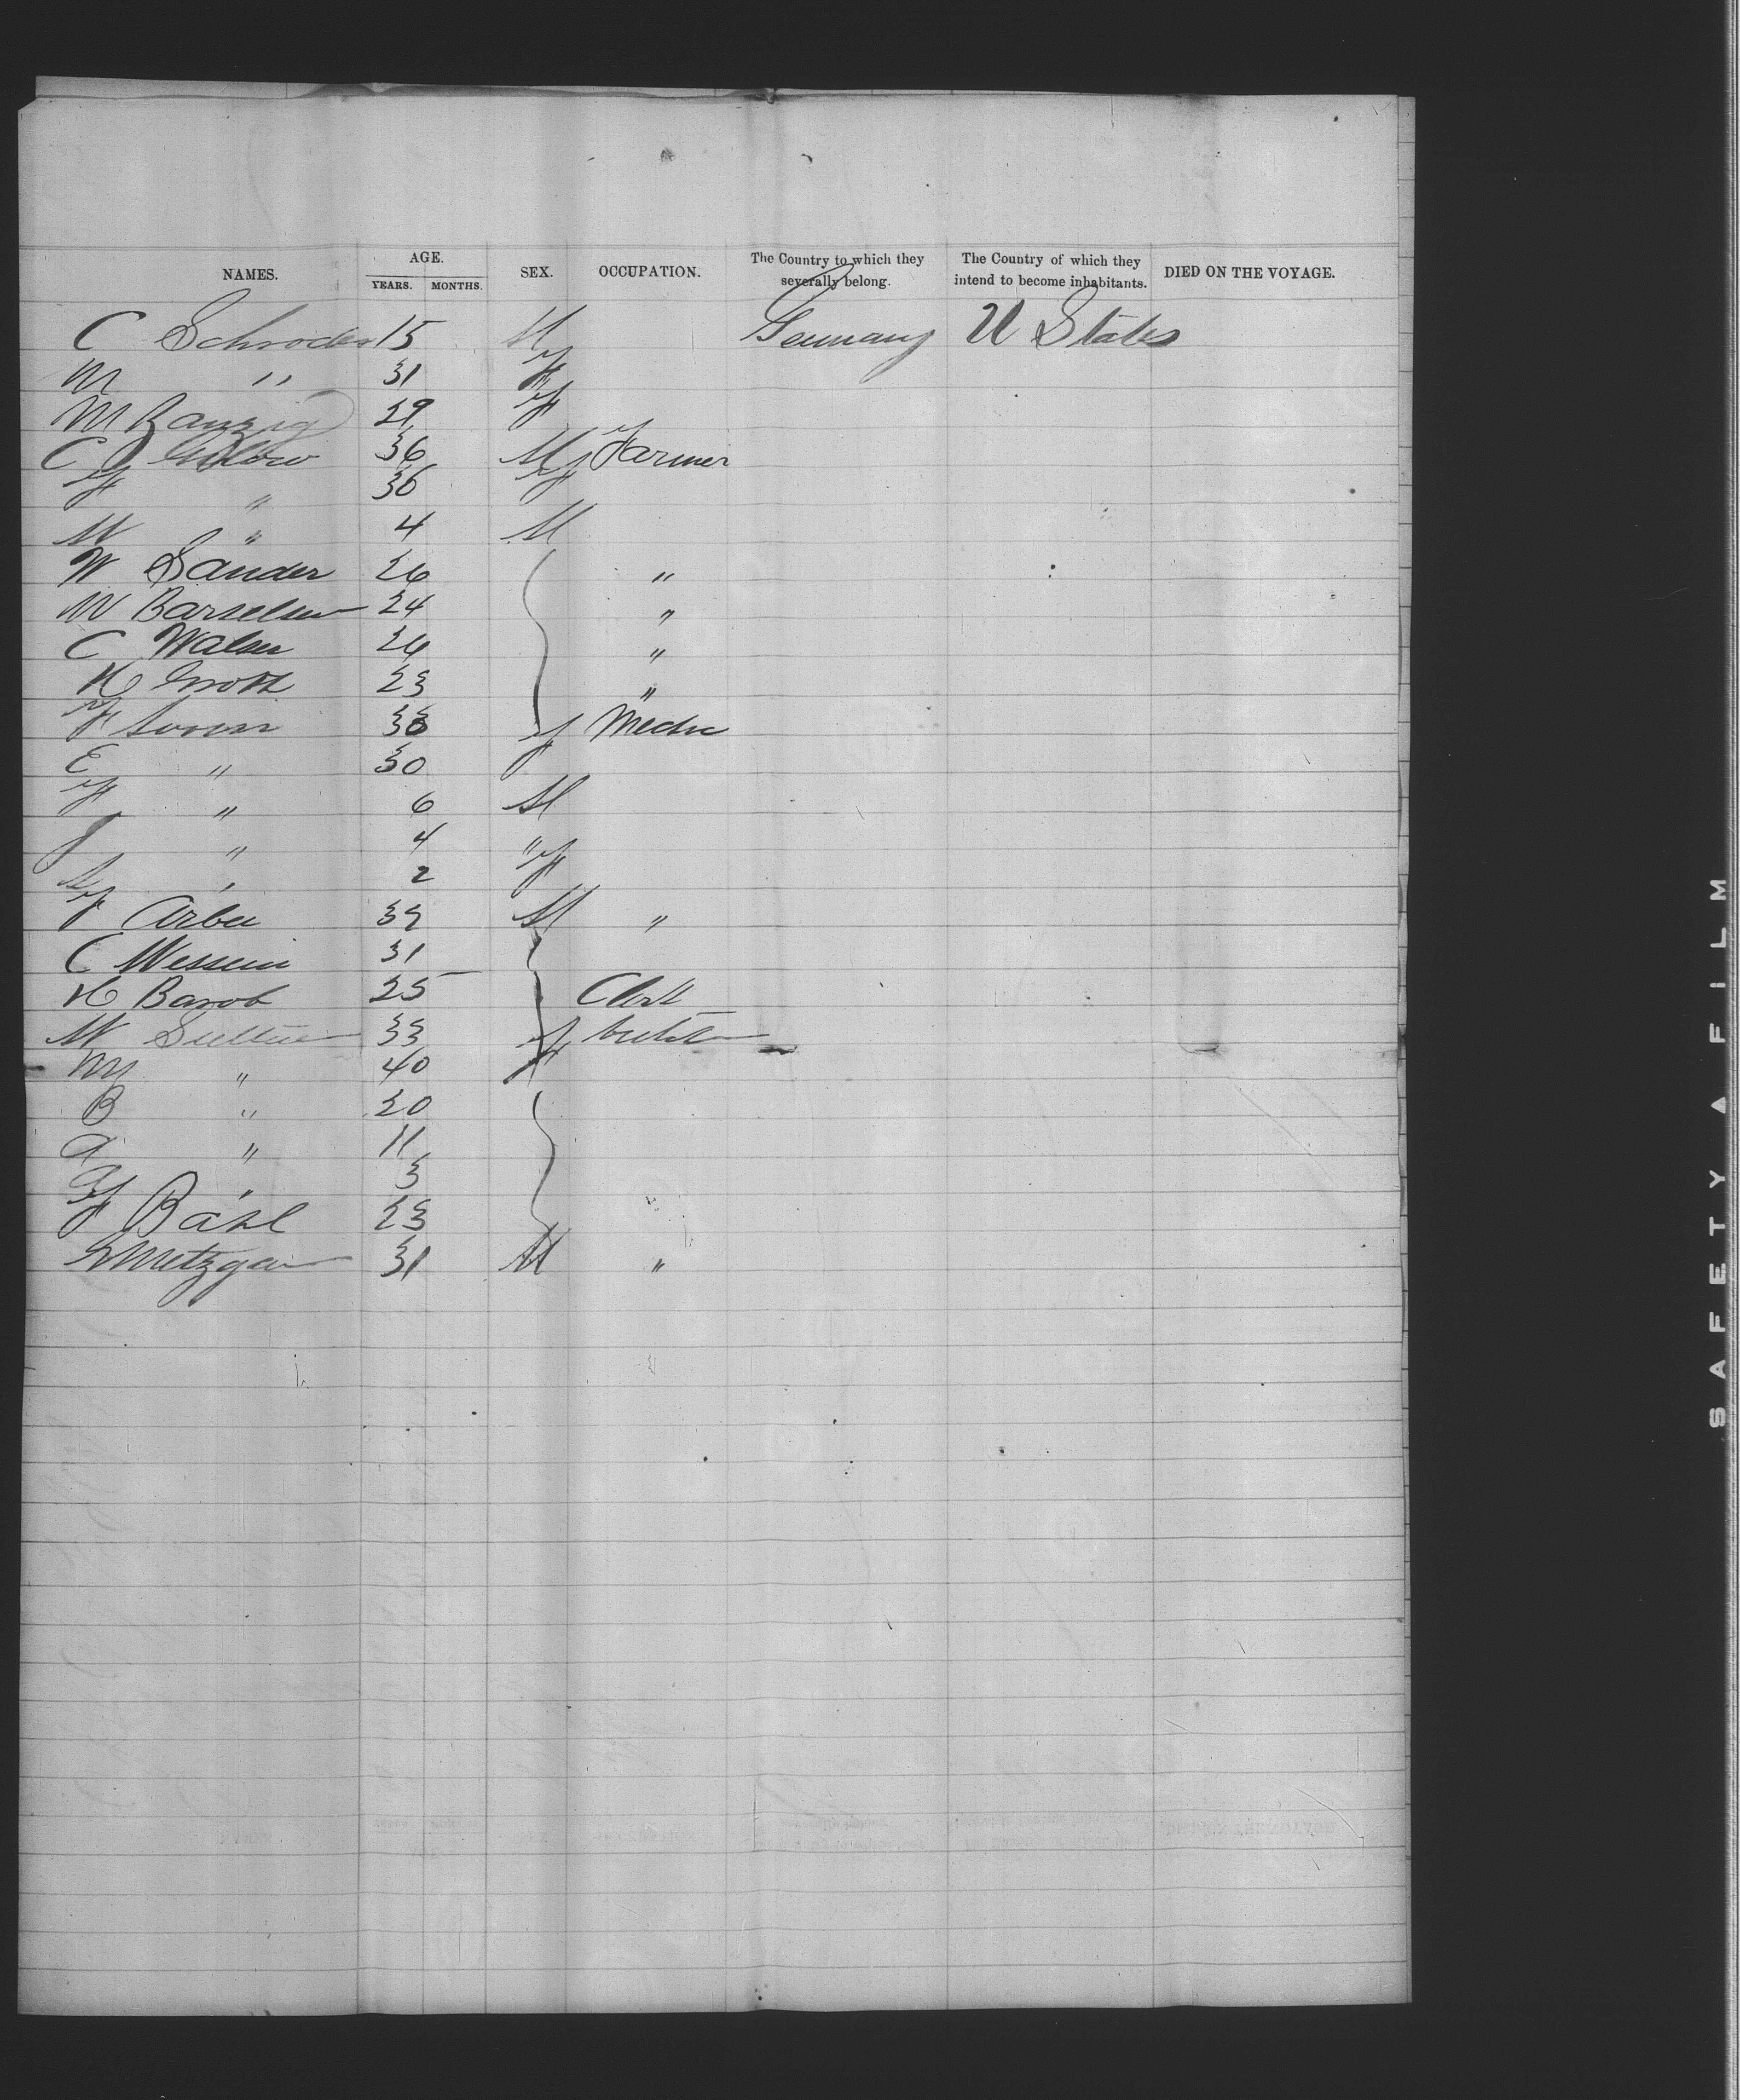 NAMES. AGE. YEARS. MONTHS. SEX. OCCUPATION. The Country to which they severally belong. The Country of which they intend to become inhabitants. DIED ON THE VOYAGE.
C Schroder 15 M Germany U States
M " 31 F
M Ranzig 29 F
C 36 M Farmer
F " 36 F
W " 4 M
W Sander 26 "
W Barselsen 24 "
C Walser 26 "
H Groth 23 "
F 30
E " 30 F
F " 6 M
J " 4 "
" 2 F
F 39 M "
C Wessein 31
H Barob 25 Clerk
W 33
M " 40 F
B " 20
A " 11
" 3
F Bahl 23
Metzgar 31 M "
SAFETY ▲ FILM